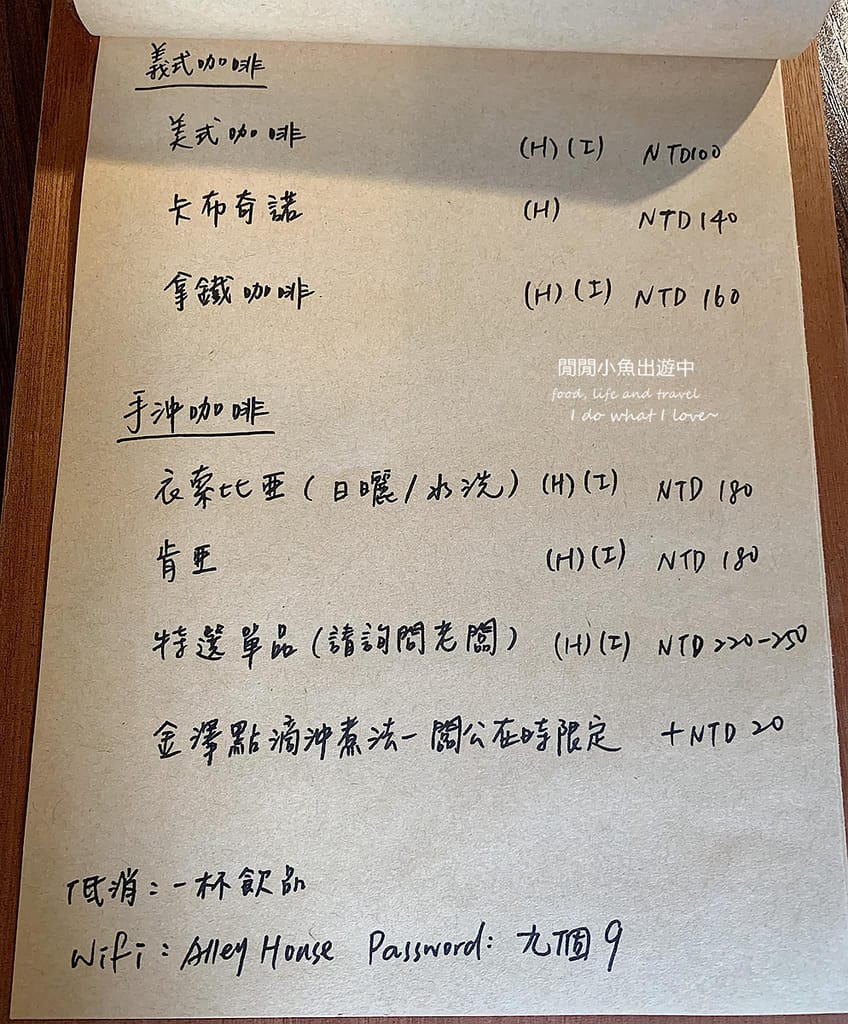 義式咖啡
美式咖啡 (H) (I) NTD100
卡布奇諾 (H) NTD 140
拿鐵咖啡 (H) (I) NTD 160
閒閒小魚出遊中
food, life and travel
I do what I love~
手沖咖啡
衣索比亞 (日曬/水洗) (H) (I) NTD 180
肯亞 (H) (I) NTD 180
特選單品 (請詢問老闆) (H) (I) NTD 220-250
金澤點滴沖煮法-闆公在時限定 +NTD 20
低消:一杯飲品
Wifi: Alley House Password: 九個9